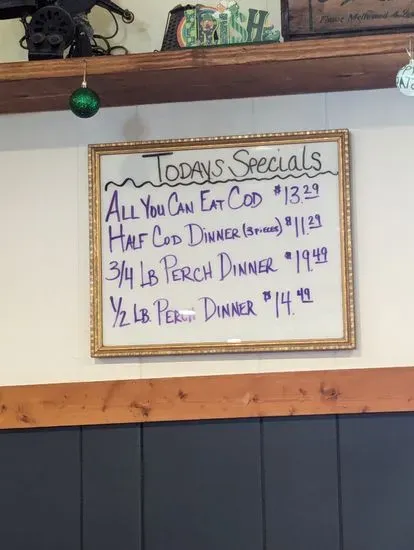 TODAYS SPECIALS
ALL YOU CAN EAT COD $13.29
HALF COD DINNER (3 PIECES) $11.29
3/4 LB PERCH DINNER $19.49
1/2 LB. PERCH DINNER $14.49